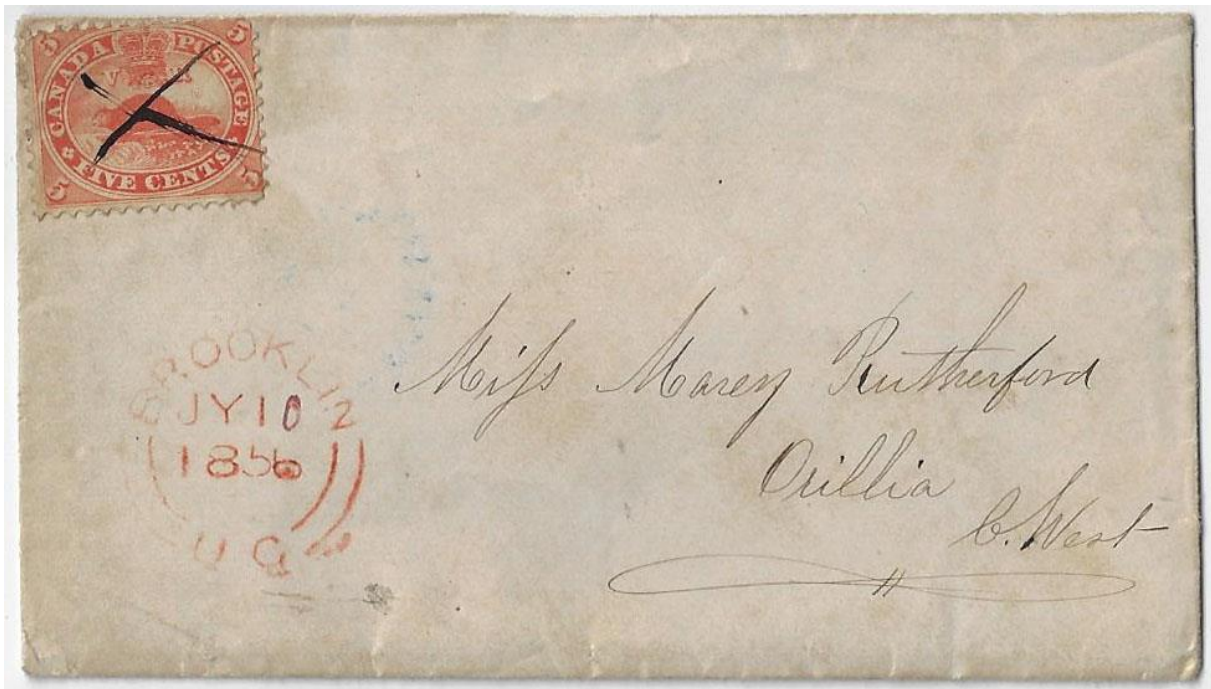 5 CANADA POSTAGE 5
V R
5 FIVE CENTS 5
BROOKLIN
JY 10
1856
U C
Miss Marey Rutherford
Orillia
C. West